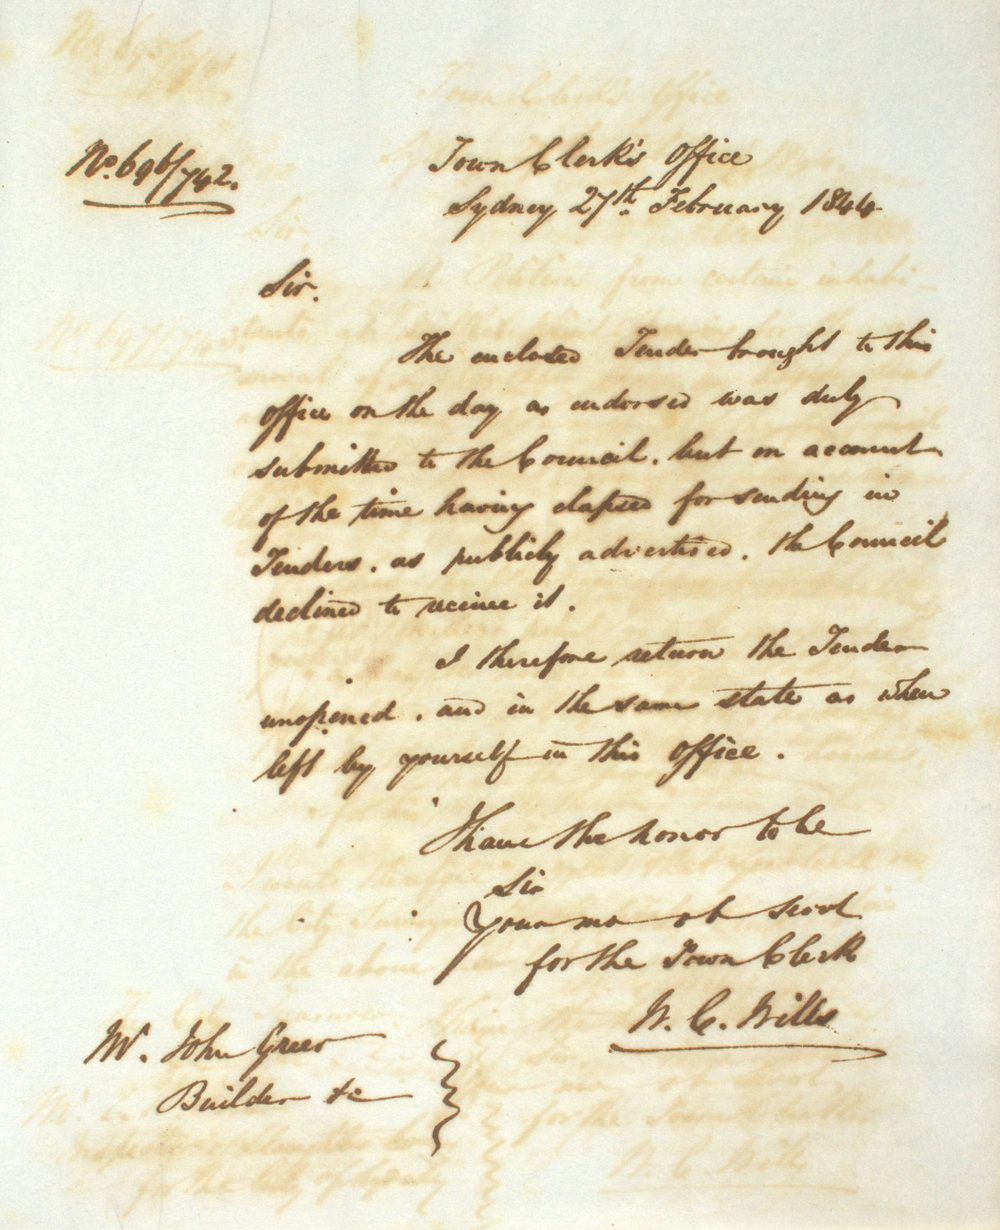 No. 696/742.
Town Clerk's Office
Sydney 27th February 1844
Sir.
The enclosed Tender brought to this
office on the day as endorsed was duly
submitted to the Council, but on account
of the time having elapsed for sending in
Tenders, as publicly advertised, the Council
declined to receive it.
I therefore return the Tender
unopened, and in the same state as when
left by yourself in this Office.
I have the honor to be
Sir
Your mo ob Servt
for the Town Clerk
W. C. Wills
Mr. John Greer
Builder &c